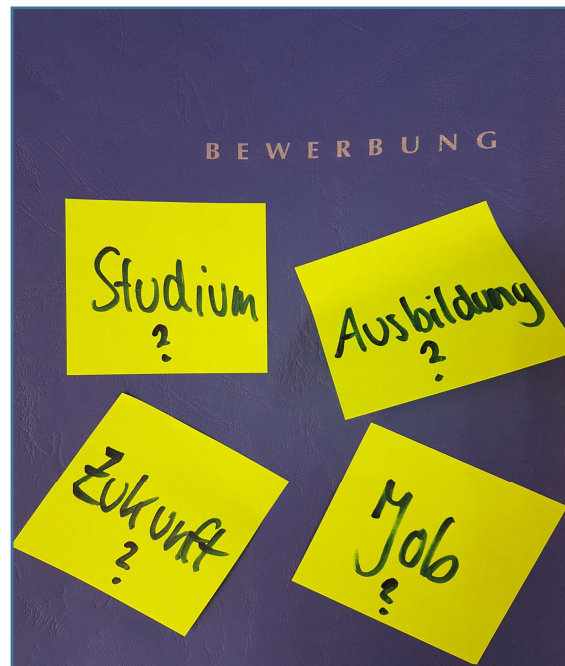 BEWERBUNG
Studium
?
Ausbildung
?
Zukunft
?
Job
?